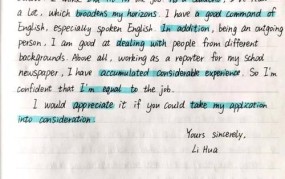 a lot, which broadens my horizons. I have a good command of
English, especially spoken English. In addition, being an outgoing
person, I am good at dealing with people from different
backgrounds. Above all, working as a reporter for my school
newspaper, I have accumulated considerable experience. So I'm
confident that I'm equal to the job.
I would appreciate it if you could take my application
into consideration.
Yours sincerely,
Li Hua